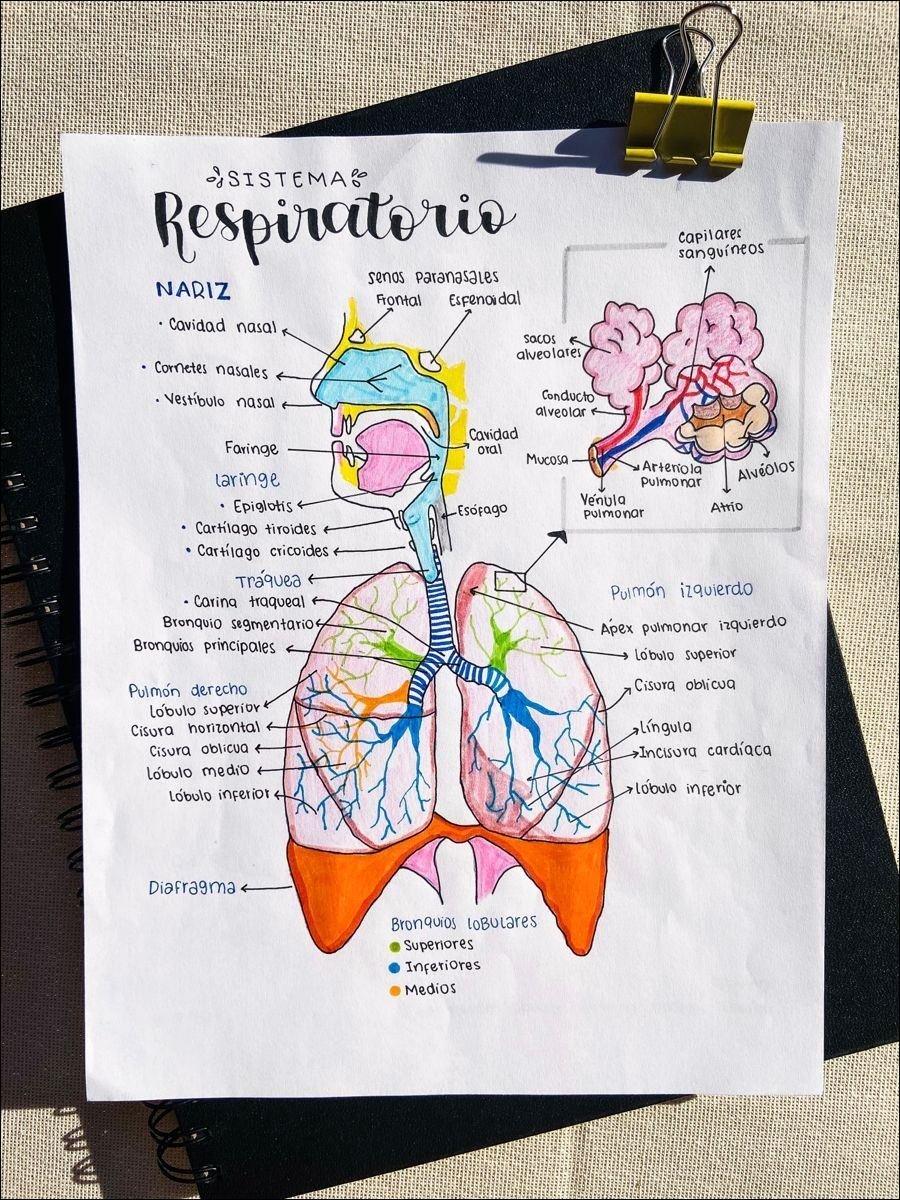 SISTEMA
Respiratorio
NARIZ
• Cavidad nasal
• Cornetes nasales
• Vestíbulo nasal
Faringe
laringe
• Epiglotis
• Cartílago tiroides
• Cartílago cricoides
Tráquea
• Carina traqueal
Bronquio segmentario
Bronquios principales
Pulmón derecho
Lóbulo superior
Cisura horizontal
Cisura oblicua
Lóbulo medio
Lóbulo inferior
Diafragma
senos paranasales
Frontal
Esfenoidal
Cavidad
oral
Esófago
Capilares
sanguíneos
sacos
alveolares
Conducto
alveolar
Mucosa
Vénula
pulmonar
Arteriola
pulmonar
Atrio
Alvéolos
Pulmón izquierdo
Ápex pulmonar izquierdo
Lóbulo superior
Cisura oblicua
Língula
Incisura cardíaca
Lóbulo inferior
Bronquios lobulares
Superiores
Inferiores
Medios